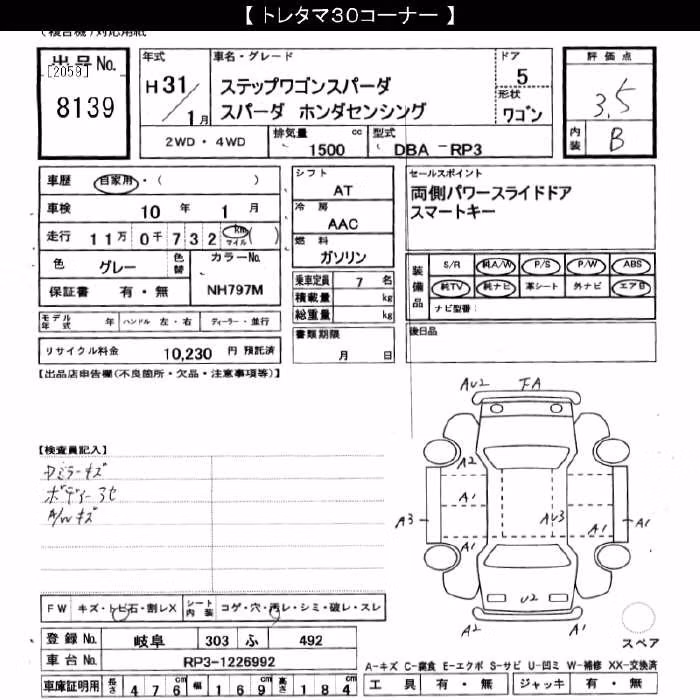 【 トレタマ30コーナー 】
(複合機)対応用紙
出品No.
[2059]
8139
年式
H 31/1月
車名・グレード
ステップワゴンスパーダ
スパーダ ホンダセンシング
ドア
5
形状
ワゴン
評価点
3.5
内装
B
2WD・4WD
排気量
1500 cc
型式
DBA -RP3
車歴 自家用・( )
車検 10年 1月
走行 11万0千732 km マイル ( )
色 グレー 色替
カラーNo.
NH797M
保証書 有・無
シフト
AT
冷房
AAC
燃料
ガソリン
乗車定員 7 名
積載量 kg
総重量 kg
セールスポイント
両側パワースライドドア
スマートキー
装備品
S/R 純A/W P/S P/W ABS
純TV 純ナビ 革シート 外ナビ エアB
ナビ型番:
モデル年式 年 ハンドル 左・右 ディーラー・並行
リサイクル料金 10,230 円 預託済
書類期限
月 日
後日品
【出品店申告欄(不良箇所・欠品・注意事項等)】
【検査員記入】
ボディー
A/Wキズ
AU2 FA
A2
A1
A3
A1
AU3
A1
A1
U2
A2 A1
スペア
FW キズ・トビ石・割レX
シート内装 コゲ・穴・汚レ・シミ・破レ・スレ
登録No. 岐阜 303 ふ 492
車台No. RP3-1226992
車庫証明用 長さ 476 幅 169 高さ 184
A-キズ C-腐食 E-エクボ S-サビ U-凹ミ W-補修 XX-交換済
工具 有・無 ジャッキ 有・無